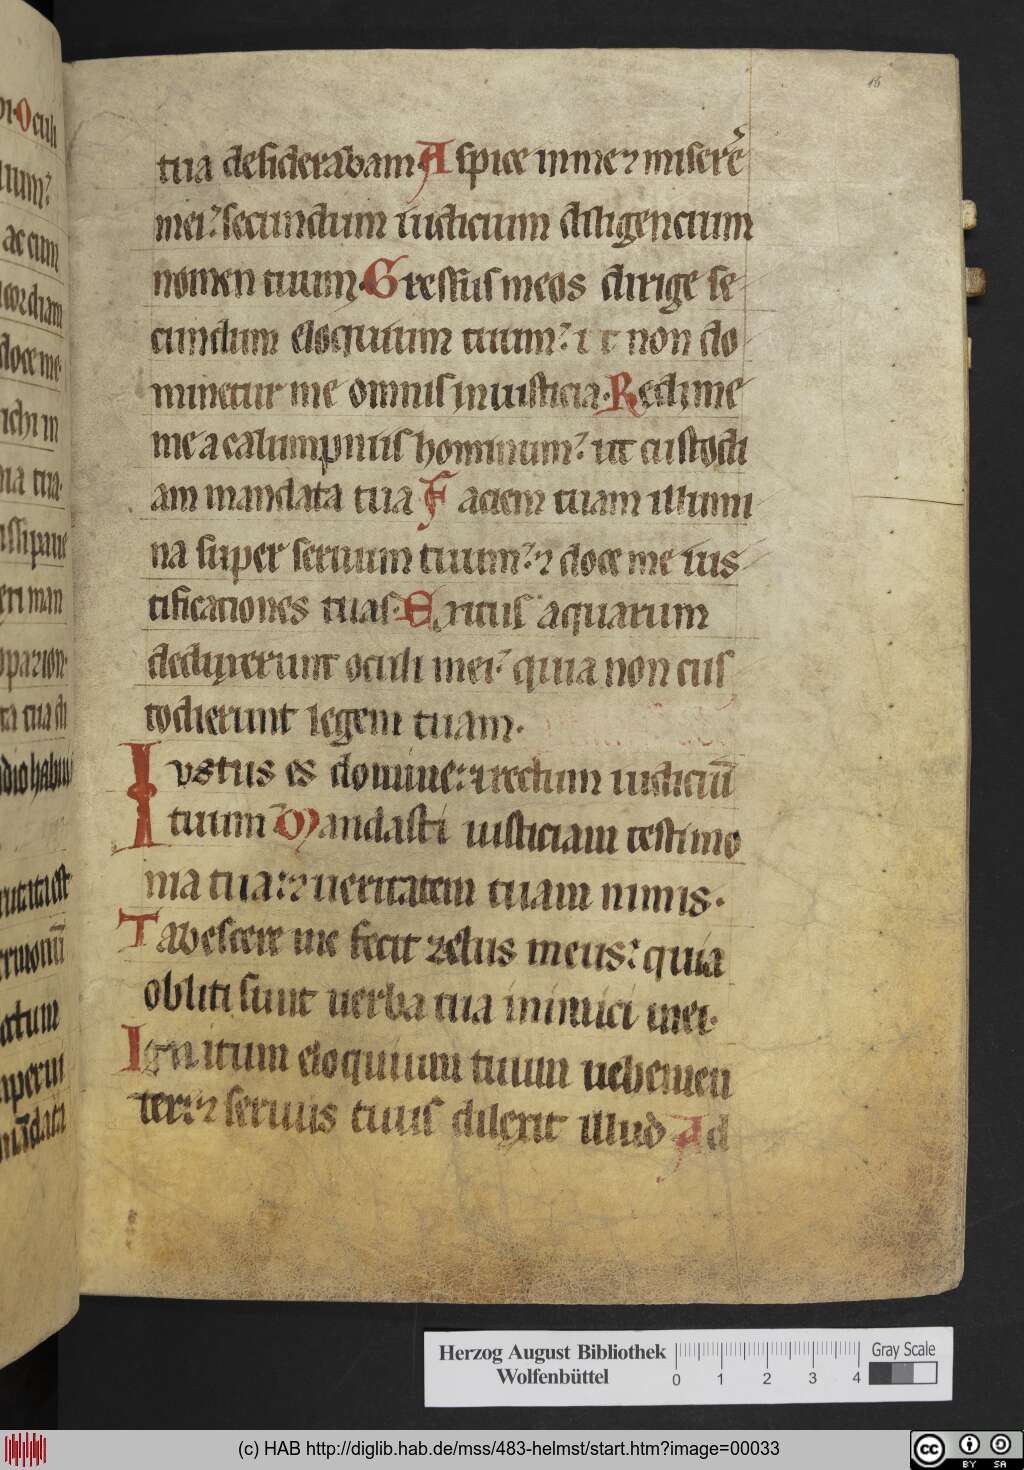 15
tua desiderabam· Aspice in me ⁊ miserē
mei: secundum iudicium diligencium
nomen tuum· Gressus meos dirige se-
cundum eloquium tuum: ut non do-
minetur me omnis iniusticia· Redime
me a calumpniis hominum: ut custodi
am mandata tua Faciem tuam illumi
na super seruum tuum: ⁊ doce me ius-
tificationes tuas· Exitus aquarum
deduxerunt oculi mei: quia non cus
todierunt legem tuam·
Iustus es domine: ⁊ rectum iudiciū
tuum Mandasti iusticiam testimo
nia tua: ⁊ ueritatem tuam nimis·
Tabescere me fecit zelus meus: quia
obliti sunt uerba tua inimici mei·
Ignitum eloquium tuum uehemen
ter: ⁊ seruus tuus dilexit illud Ad
Herzog August Bibliothek
Wolfenbüttel
0 1 2 3 4
Gray Scale
(c) HAB http://diglib.hab.de/mss/483-helmst/start.htm?image=00033
cc BY SA